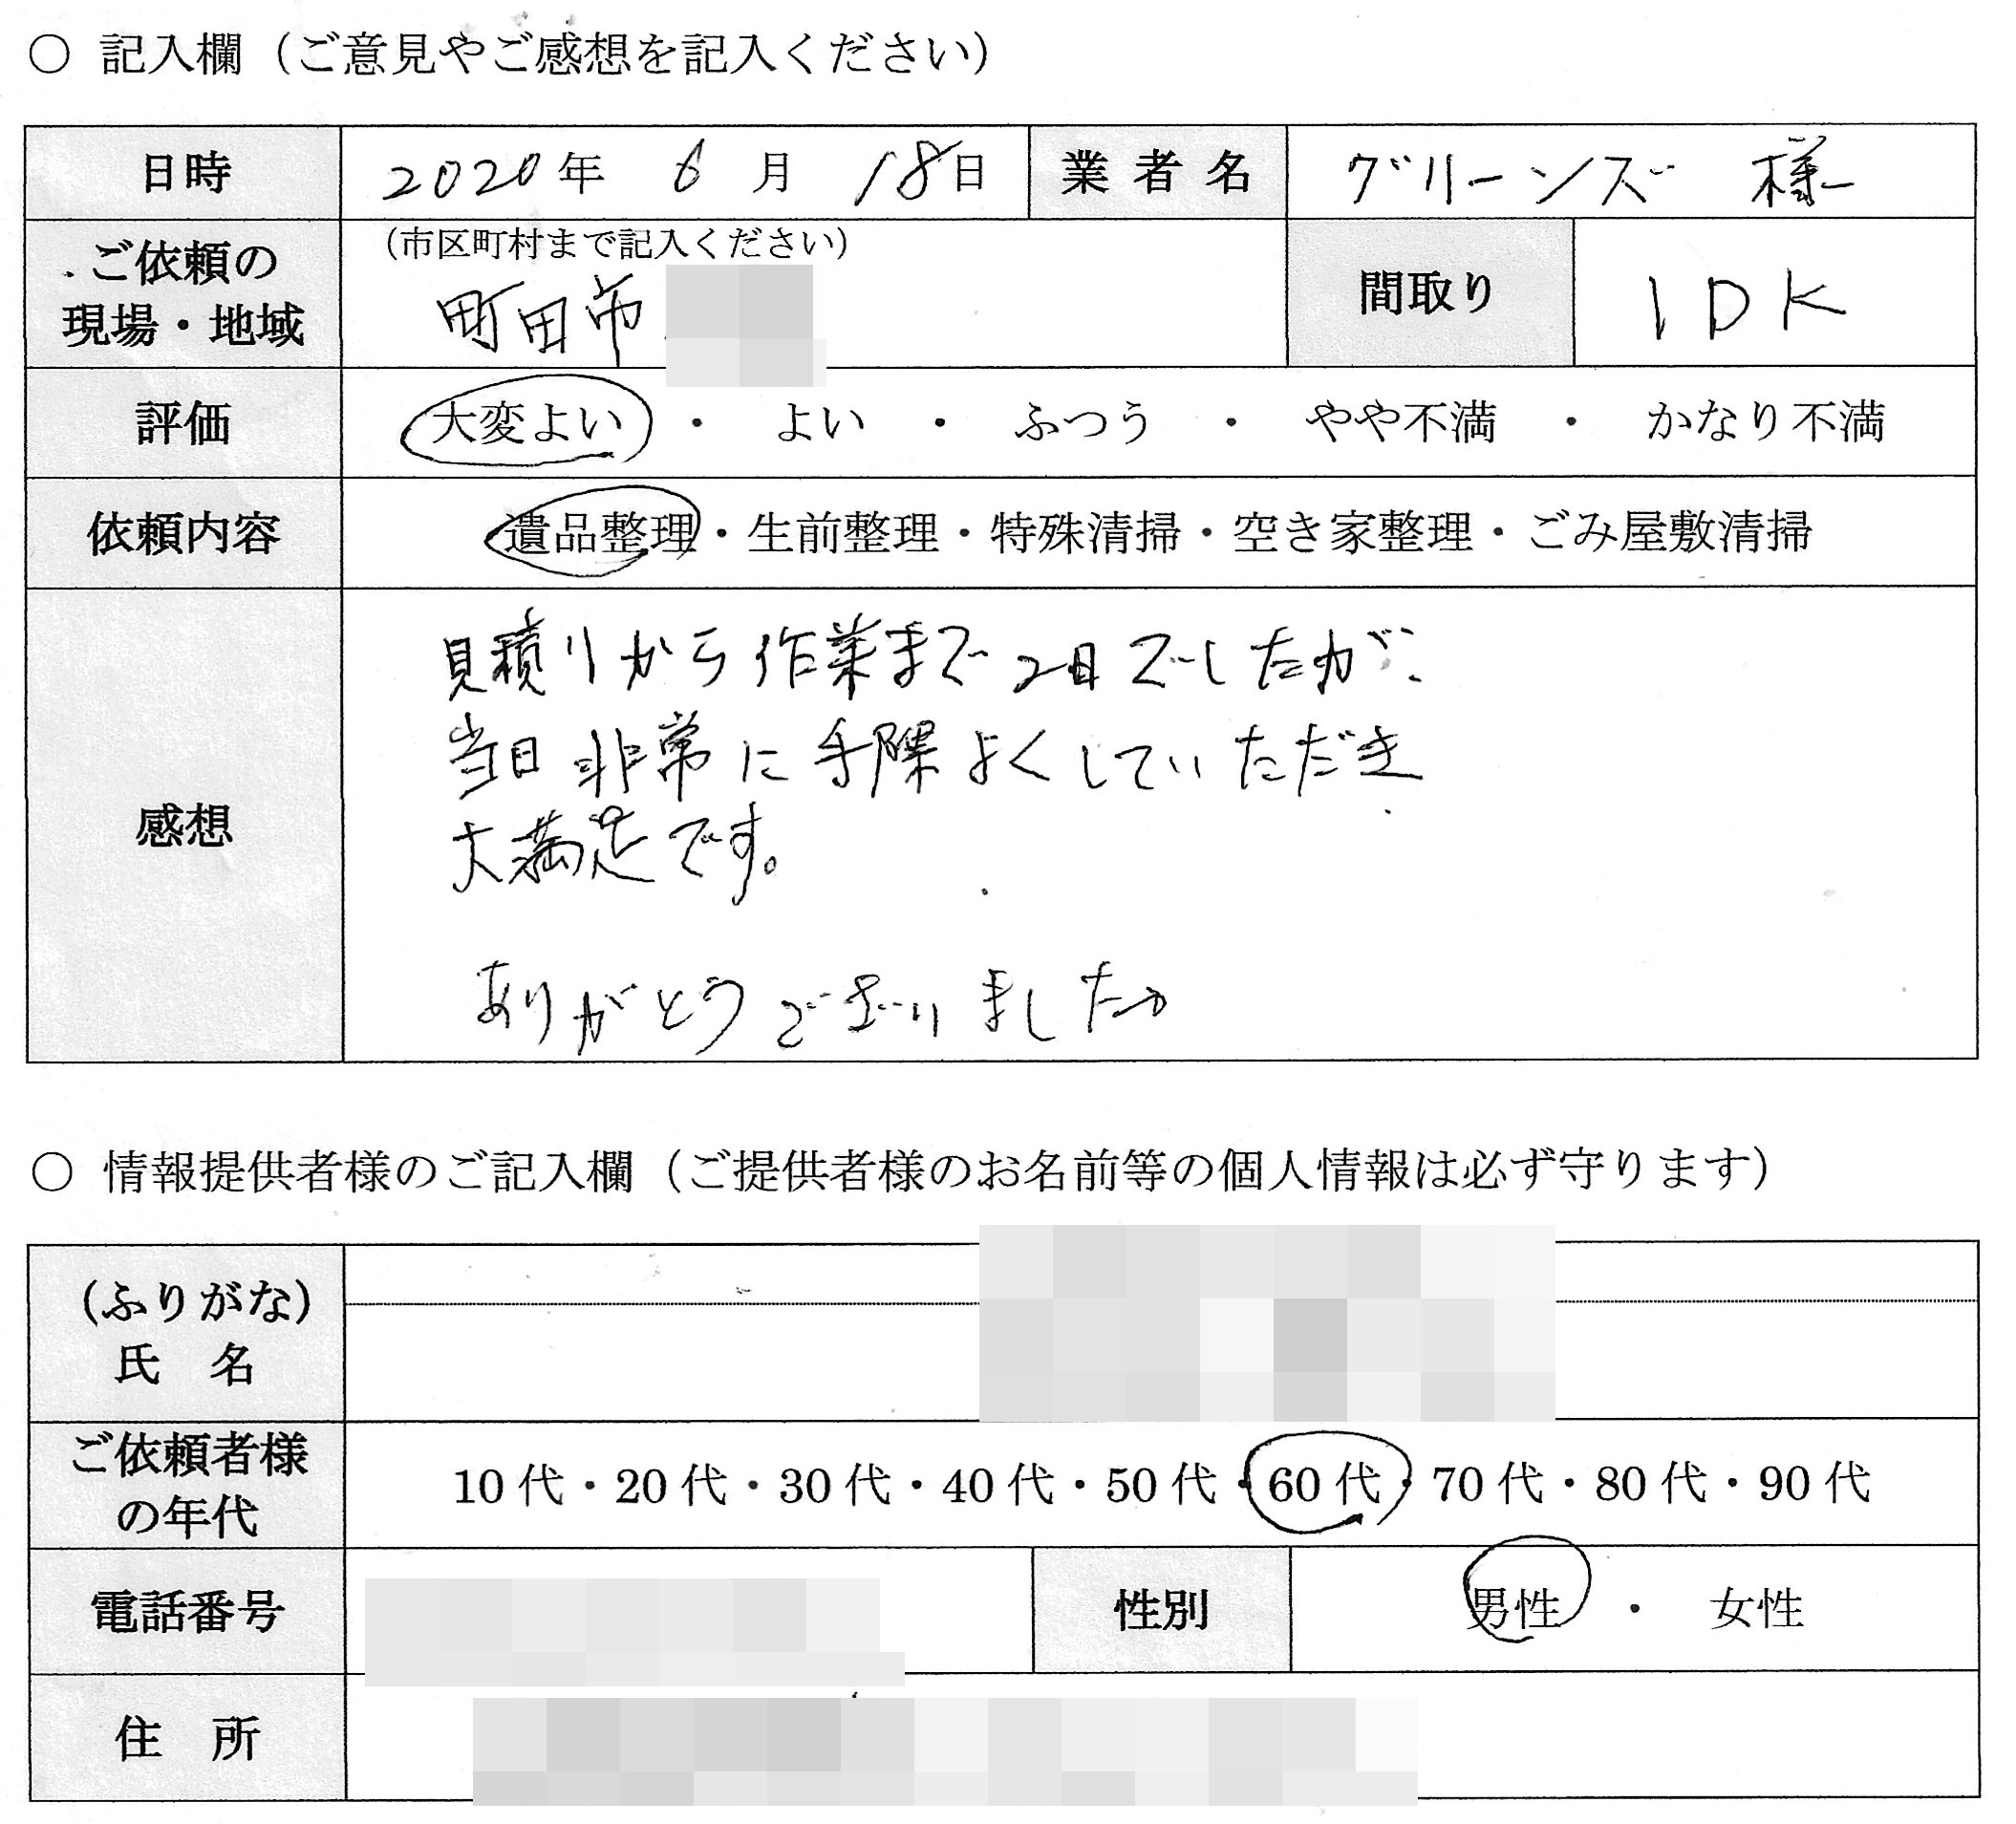 ○ 記入欄（ご意見やご感想を記入ください）
日時 2020年 6月 18日 業者名 グリーンズ 様
ご依頼の現場・地域 （市区町村まで記入ください） 間取り 1DK
町田市
評価 大変よい ・ よい ・ ふつう ・ やや不満 ・ かなり不満
依頼内容 遺品整理・生前整理・特殊清掃・空き家整理・ごみ屋敷清掃
感想
見積りから作業まで2日でしたが、
当日非常に手際よくしていただき
大満足です。
ありがとうございました。
○ 情報提供者様のご記入欄（ご提供者様のお名前等の個人情報は必ず守ります）
（ふりがな）
氏 名
ご依頼者様の年代 10代・20代・30代・40代・50代・60代・70代・80代・90代
電話番号 性別 男性 ・ 女性
住 所